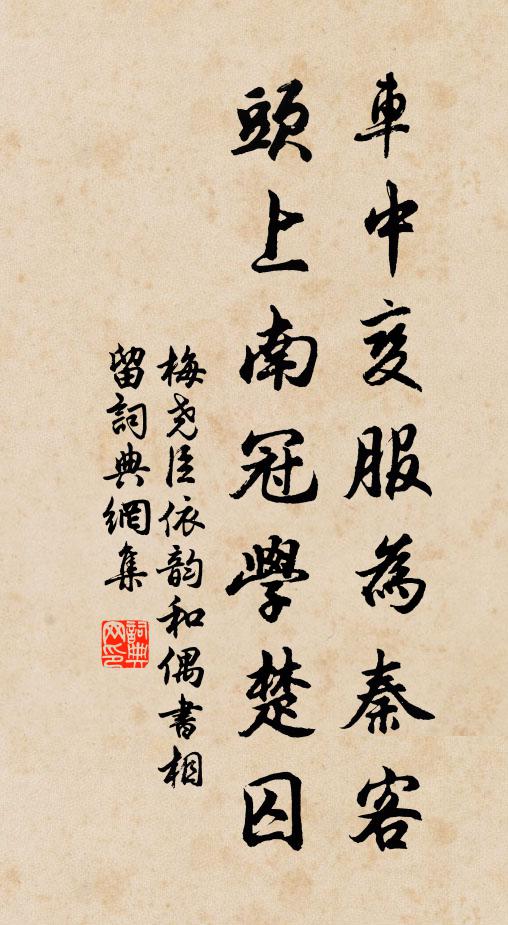 車中变服為秦客
頭上南冠學楚囚
梅尧臣依韵和偶書相
留詞典網集
詞典网印